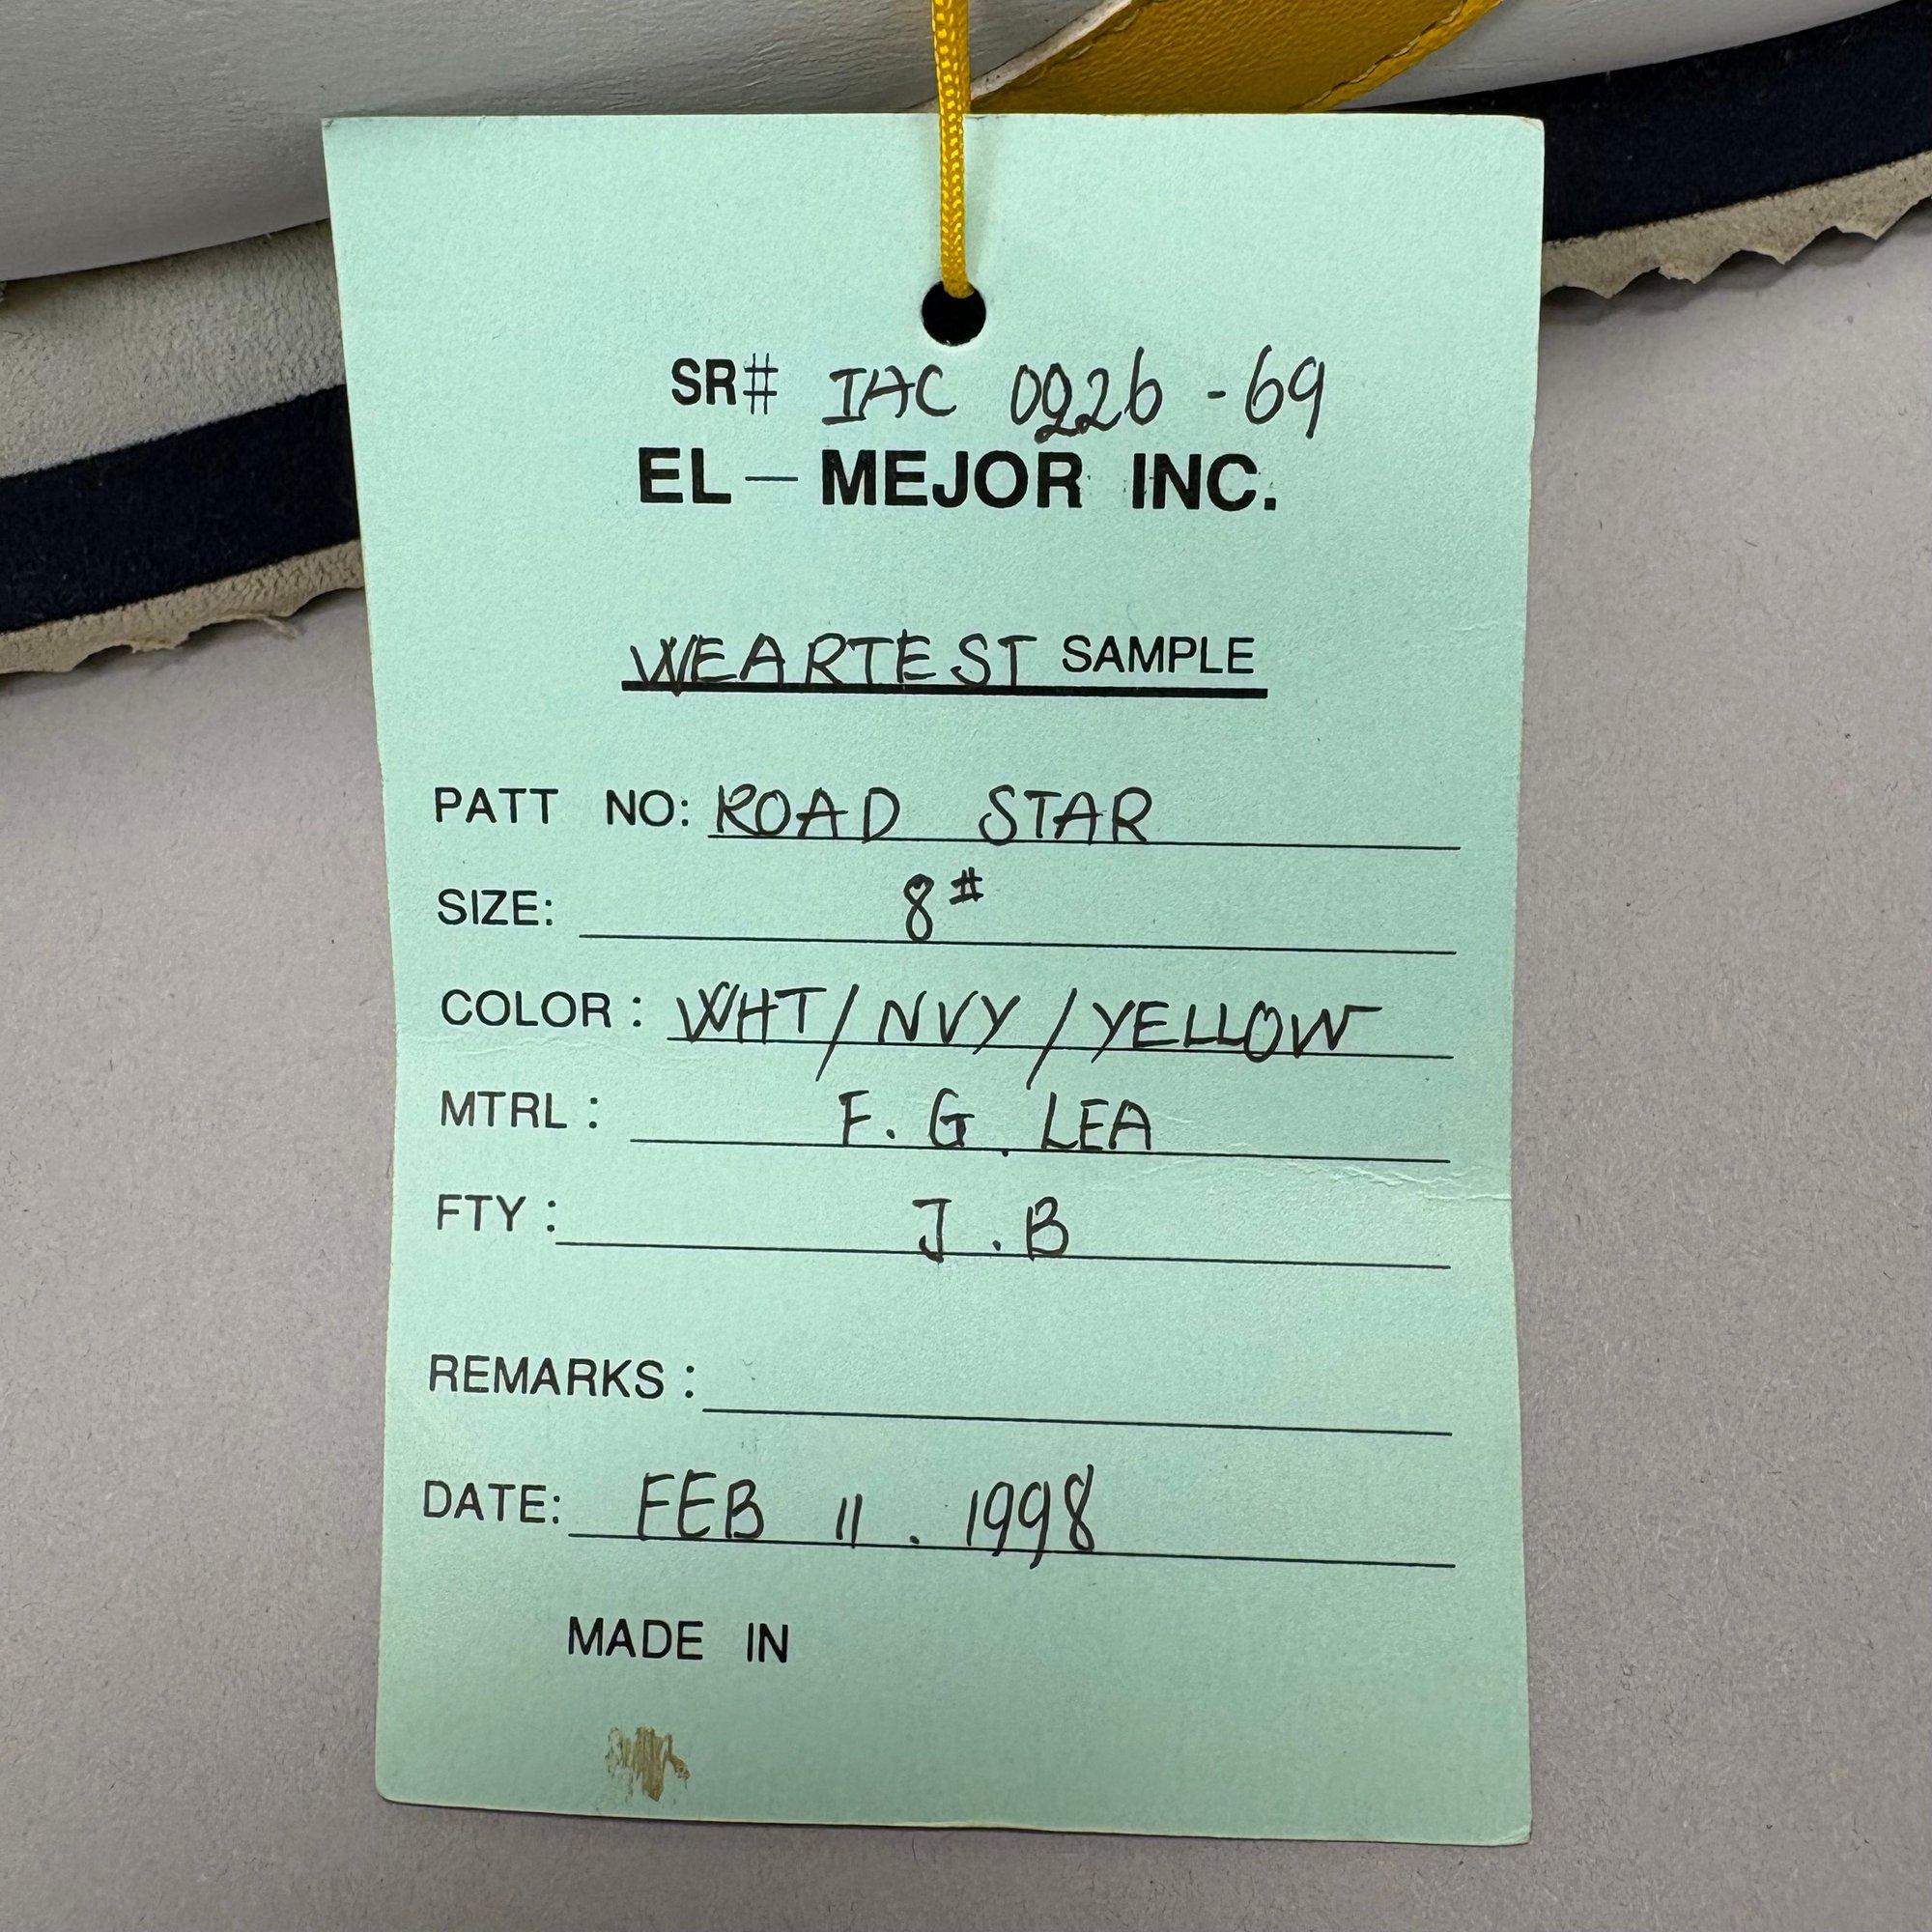 SR# IAC 0926 -69
EL-MEJOR INC.
WEARTEST SAMPLE
PATT NO: ROAD STAR
SIZE: 8#
COLOR: WHT/NVY/YELLOW
MTRL: F. G. LEA
FTY: J.B
REMARKS:
DATE: FEB 11. 1998
MADE IN